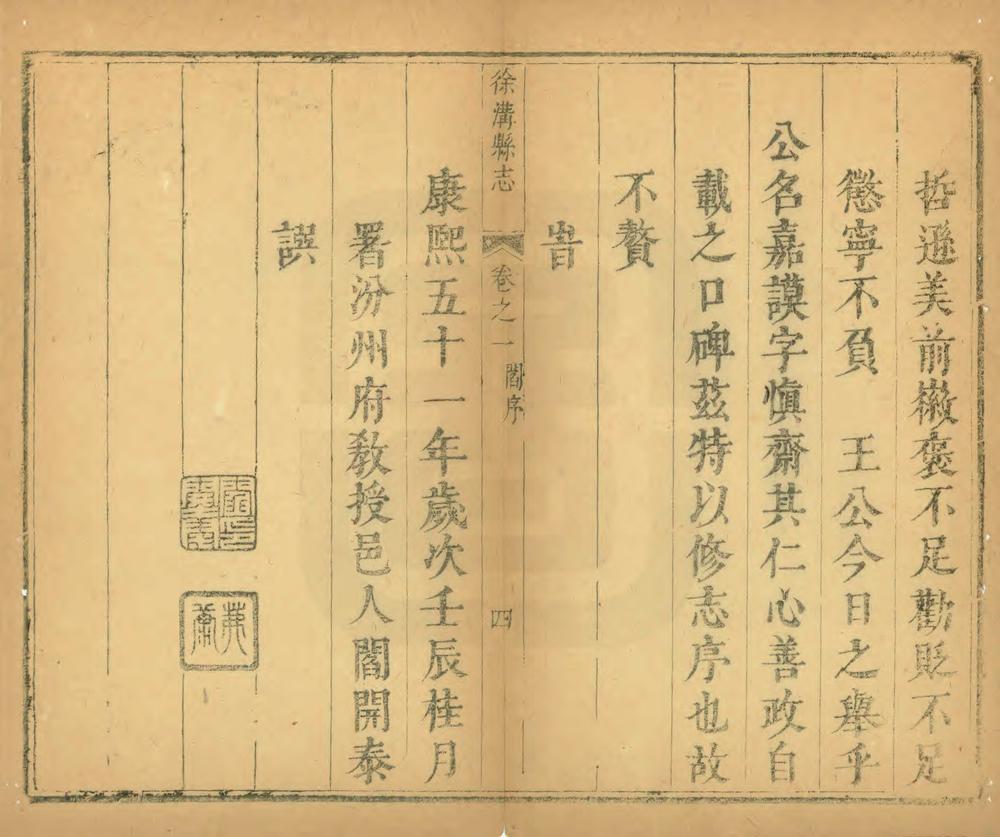 哲遜美前徽褒不足勸貶不足
懲寧不負　王公今日之舉乎
公名嘉謨字慎齋其仁心善政自
載之口碑茲特以修志序也故
不贅
旹
徐溝縣志　卷之一　閻序　四
康熙五十一年歲次壬辰桂月
署汾州府教授邑人閻開泰
譔